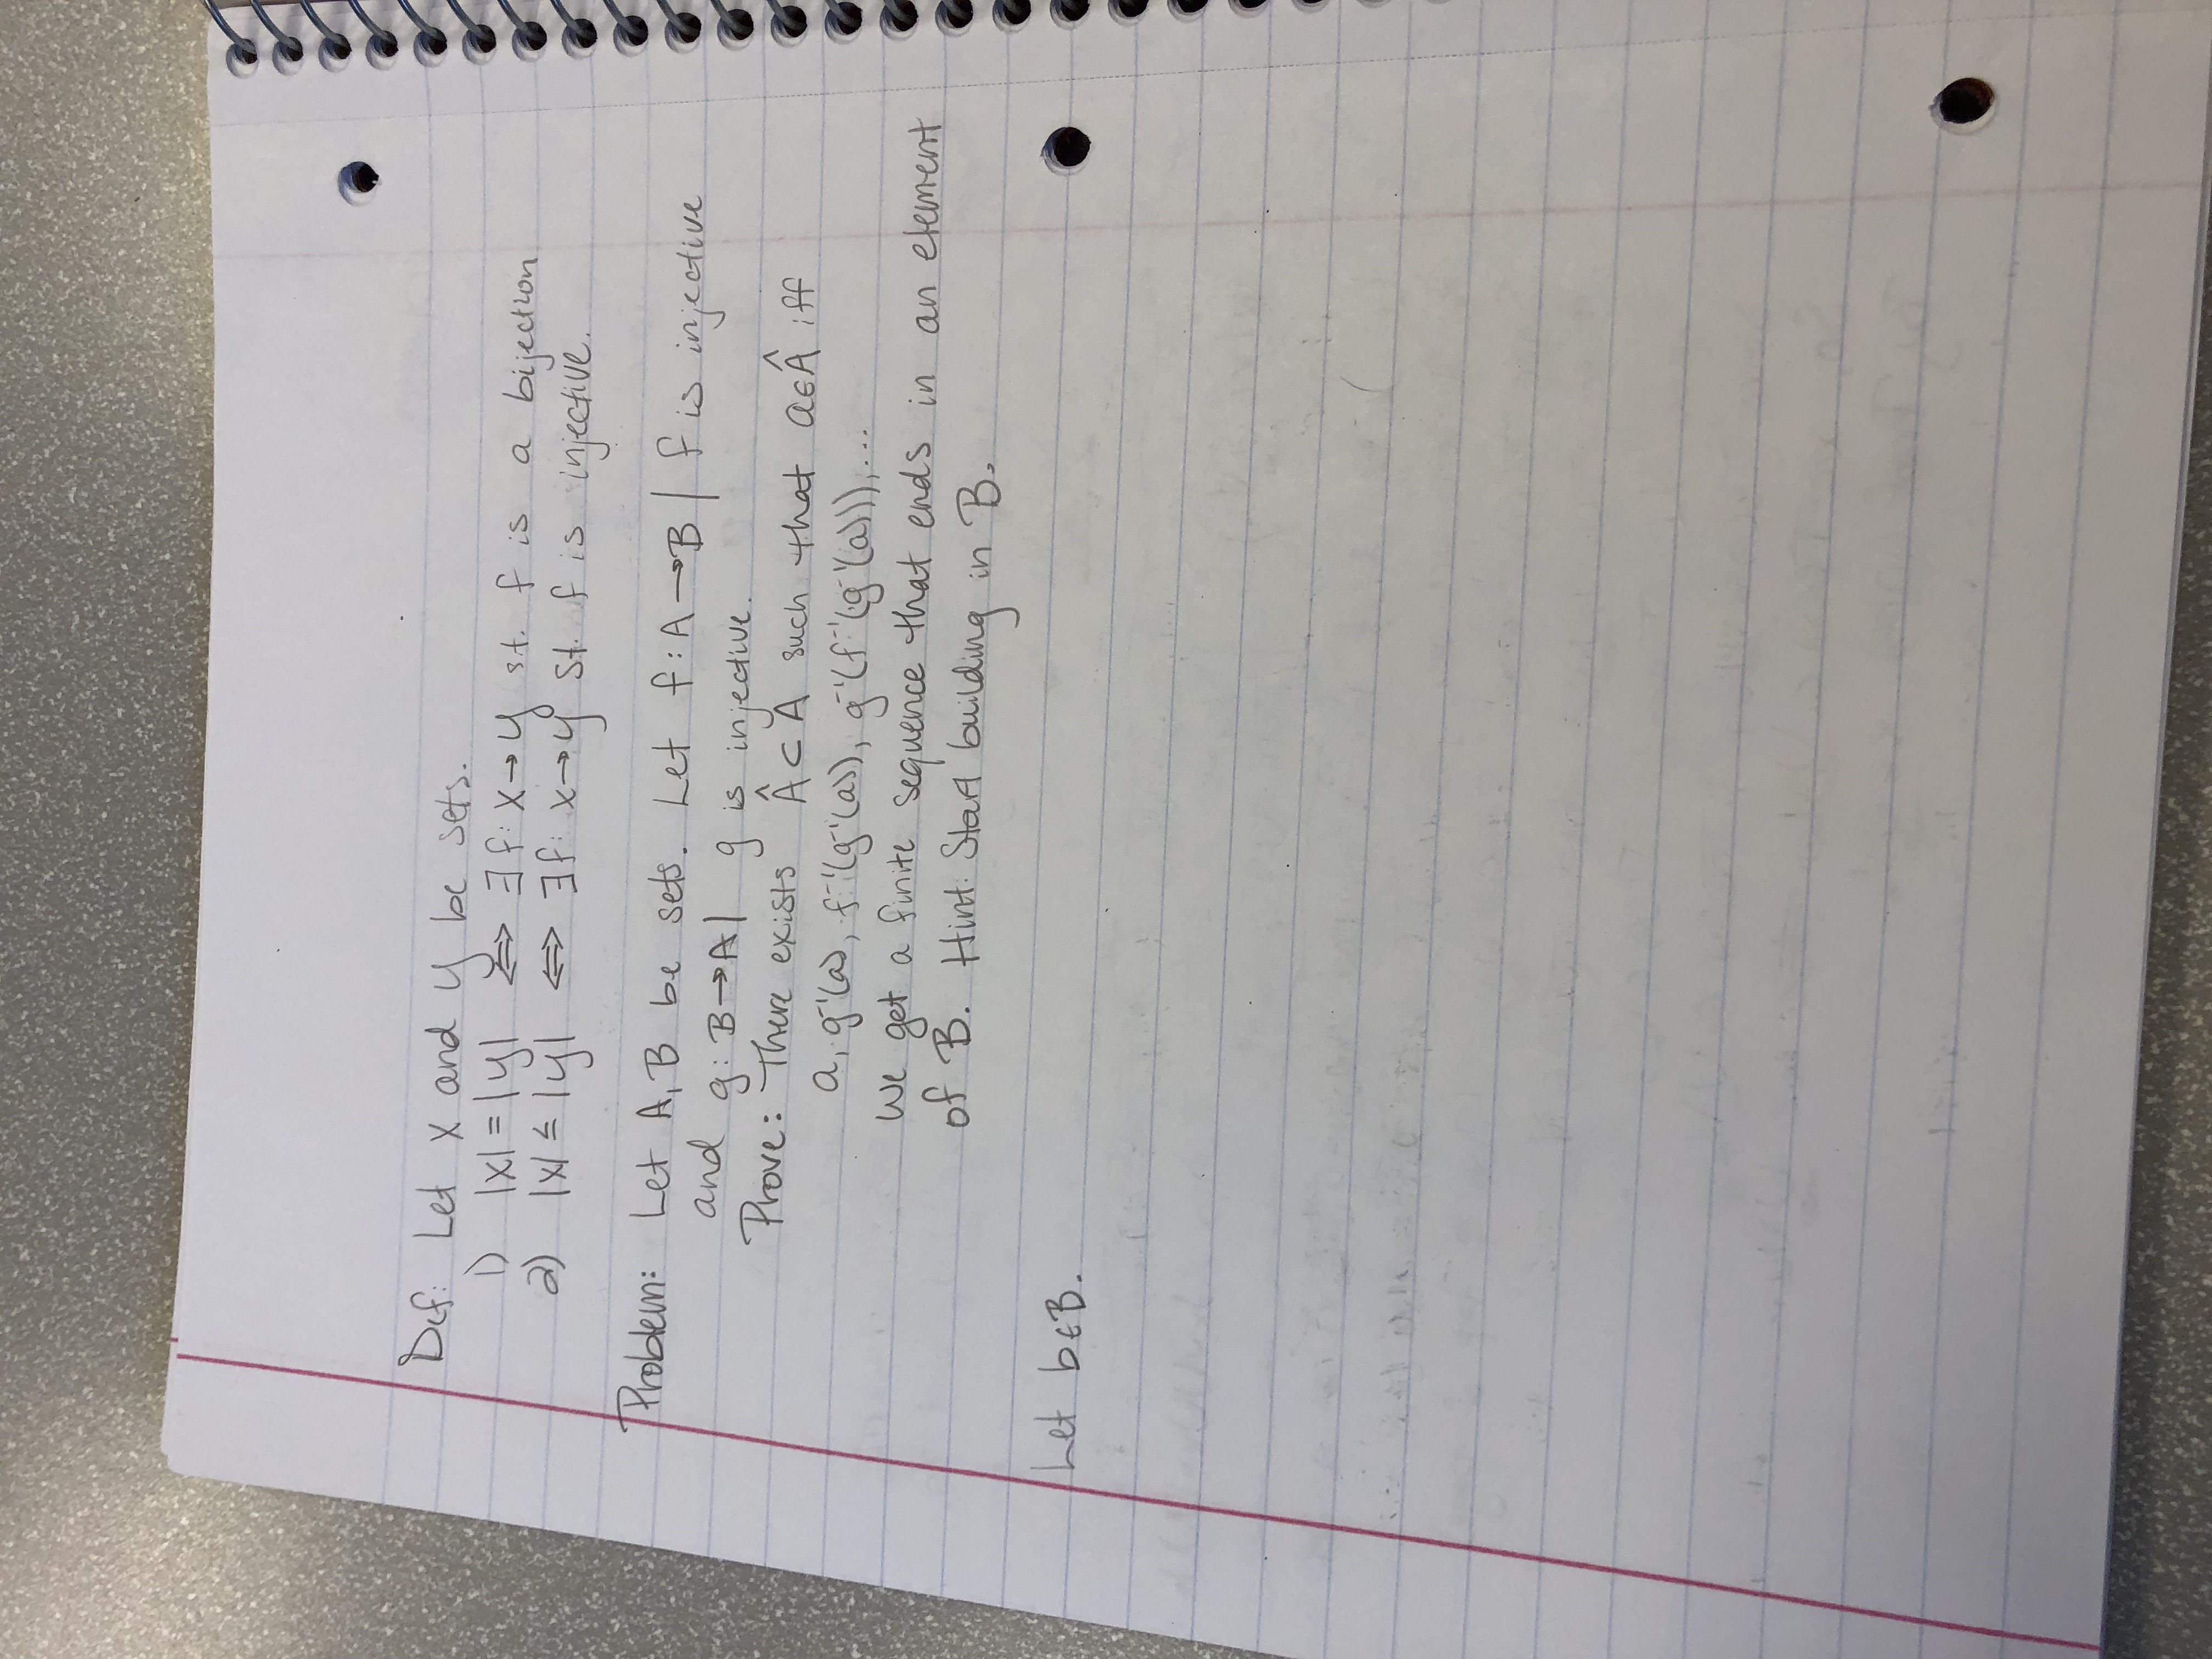 Def: Let X and Y be sets.
1) |X| = |Y| ⟺ ∃f: X→Y st. f is a bijection
2) |X| ≤ |Y| ⟺ ∃f: X→Y st. f is injective.
Problem: Let A, B be sets. Let f: A→B | f is injective
and g: B→A | g is injective.
Prove: There exists Â ⊂ A such that a∈Â iff
a, g⁻¹(a), f⁻¹(g⁻¹(a)), g⁻¹(f⁻¹(g⁻¹(a))),...
We get a finite sequence that ends in an element
of B. Hint: Start building in B.
Let b∈B.